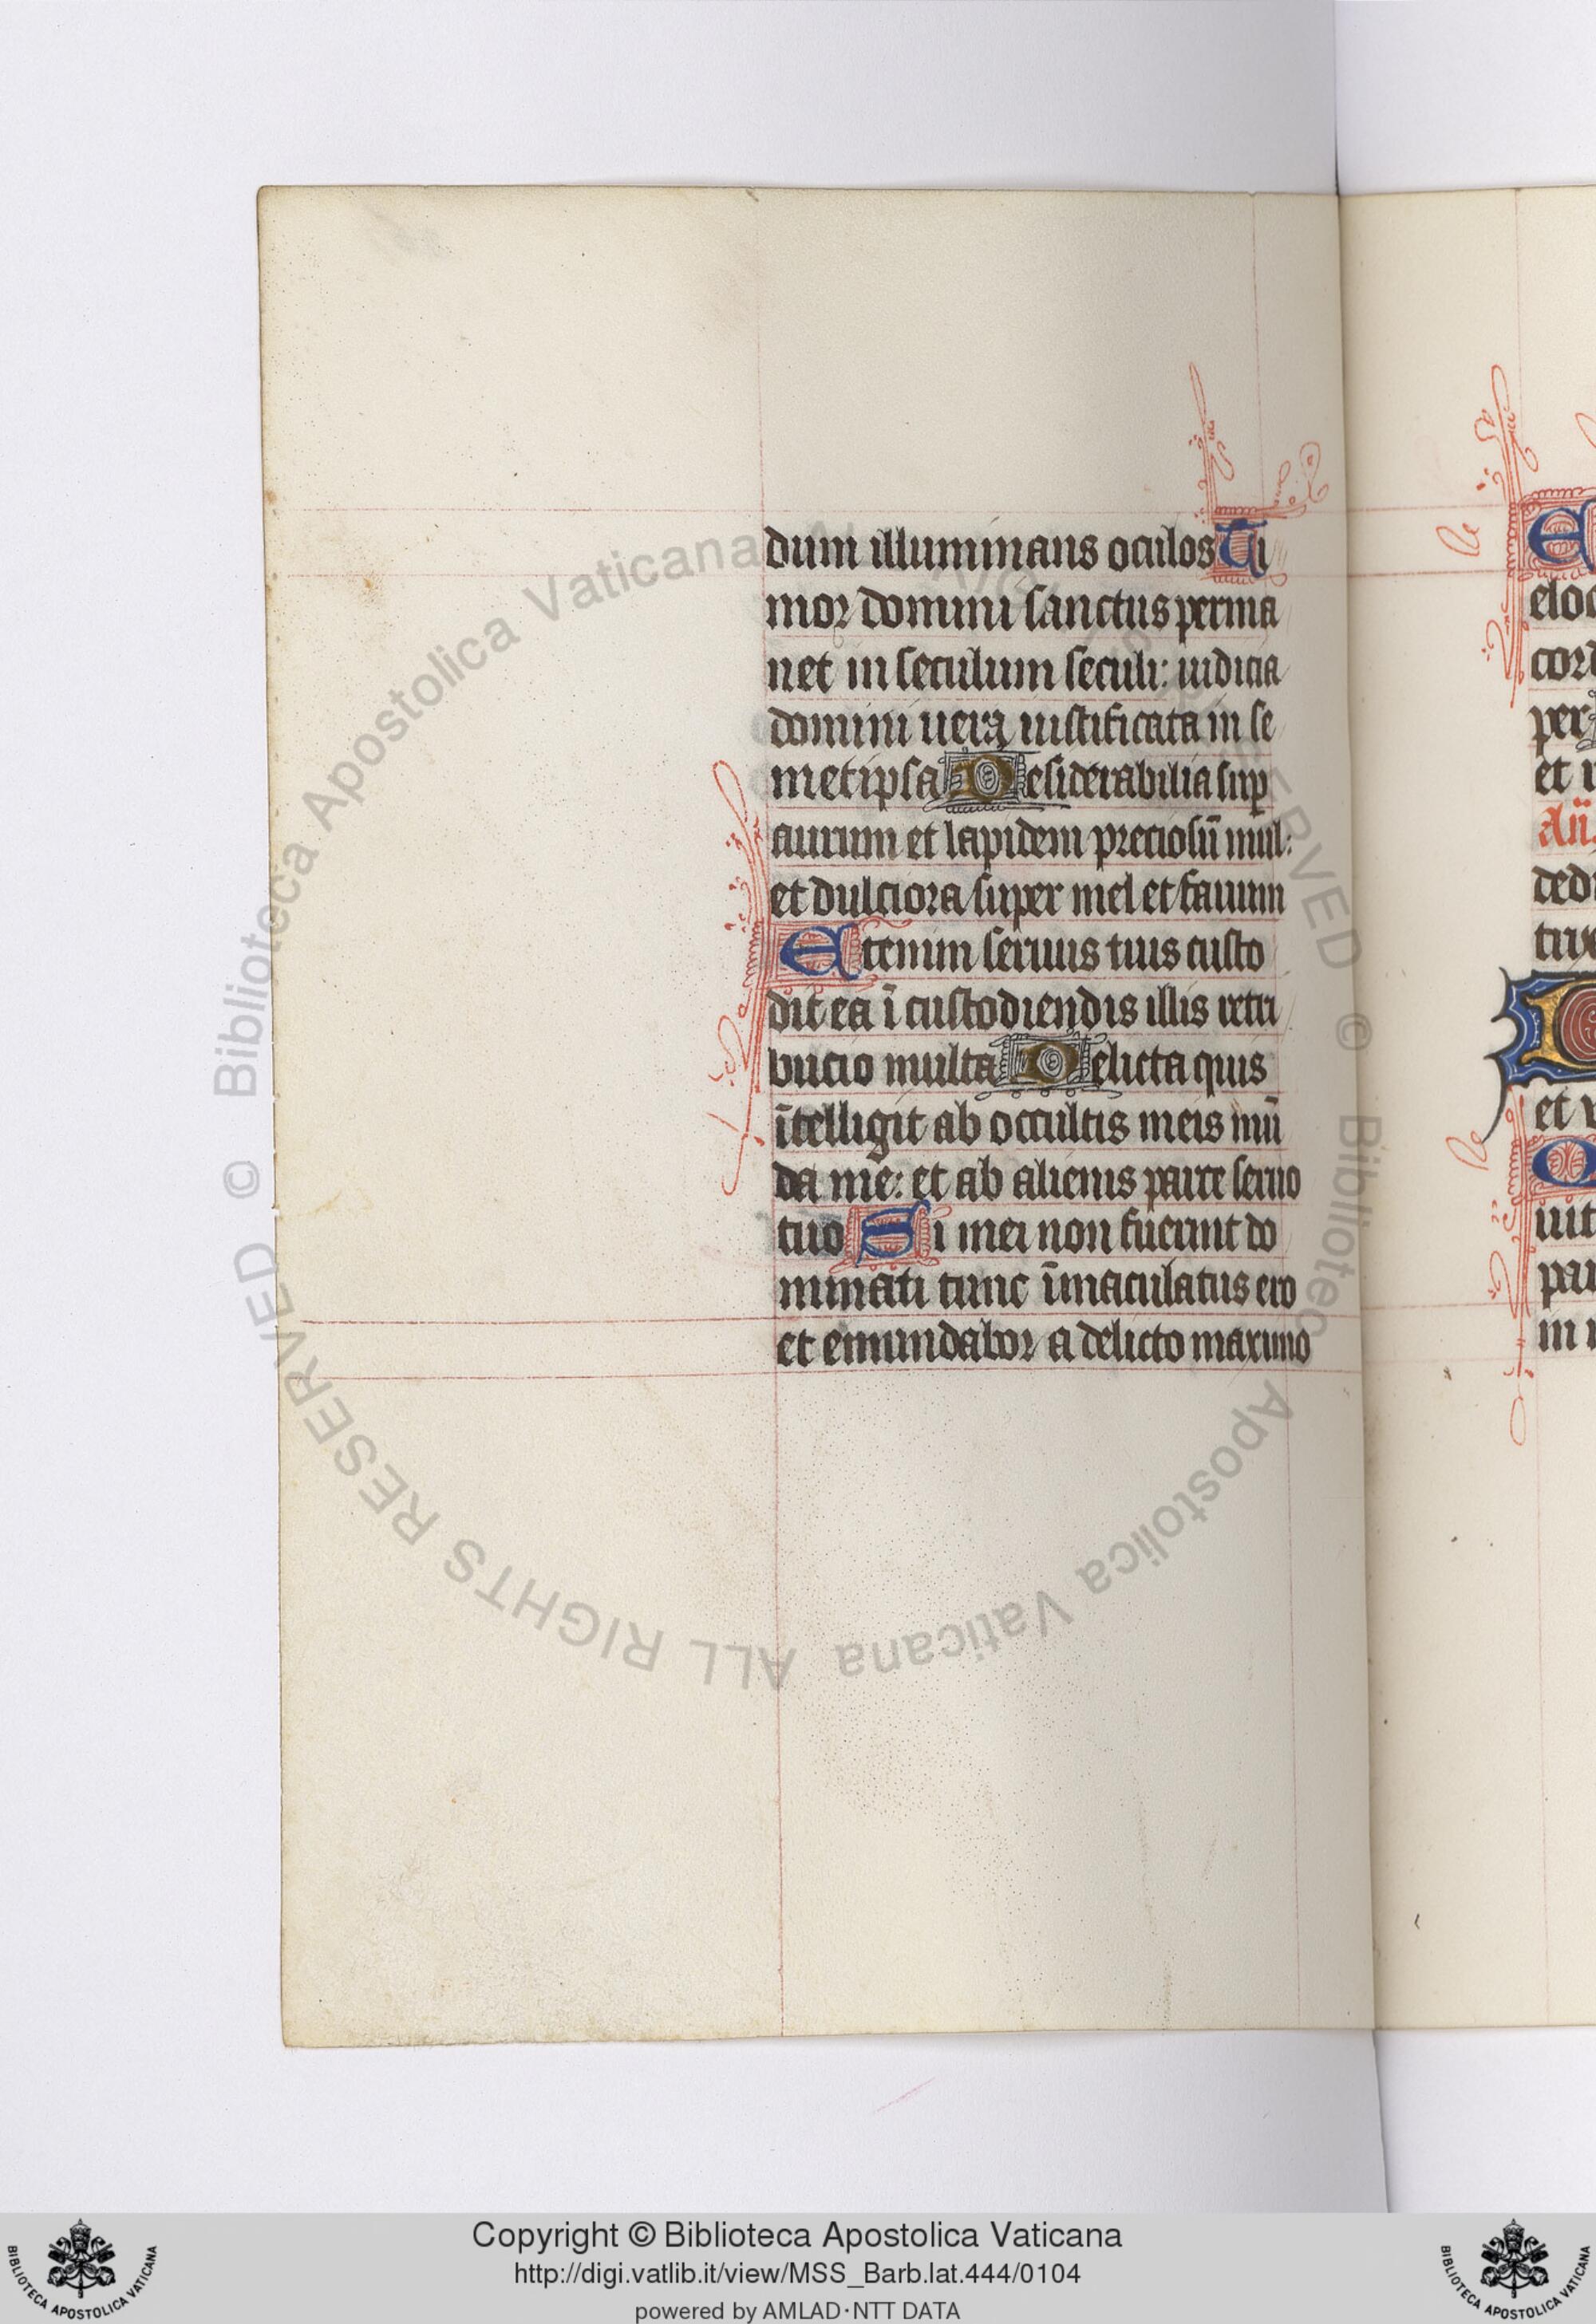 dum illuminans oculos Ti
mor domini sanctus perma
net in seculum seculi: iudicia
domini uera iustificata in se
metipsa Desiderabilia sup
aurum et lapidem preciosū mul:
et dulciora super mel et fauum
Etenim seruus tuus custo
dit ea ī custodiendis illis retri
bucio multa Delicta quis
ītelligit ab occultis meis mū
da me: et ab alienis parce seruo
tuo Si mei non fuerint do
minati tunc īmaculatus ero
et emundabor a delicto maximo
le
E
eloq
cord
per
et r
An̄.
dedi
tiue
et
le
uit
par
in
© Biblioteca Apostolica Vaticana ALL RIGHTS RESERVED © Biblioteca Apostolica Vaticana ALL RIGHTS RESERVED
Copyright © Biblioteca Apostolica Vaticana
http://digi.vatlib.it/view/MSS_Barb.lat.444/0104
powered by AMLAD·NTT DATA
BIBLIOTECA APOSTOLICA VATICANA
BIBLIOTECA APOSTOLICA VATICANA